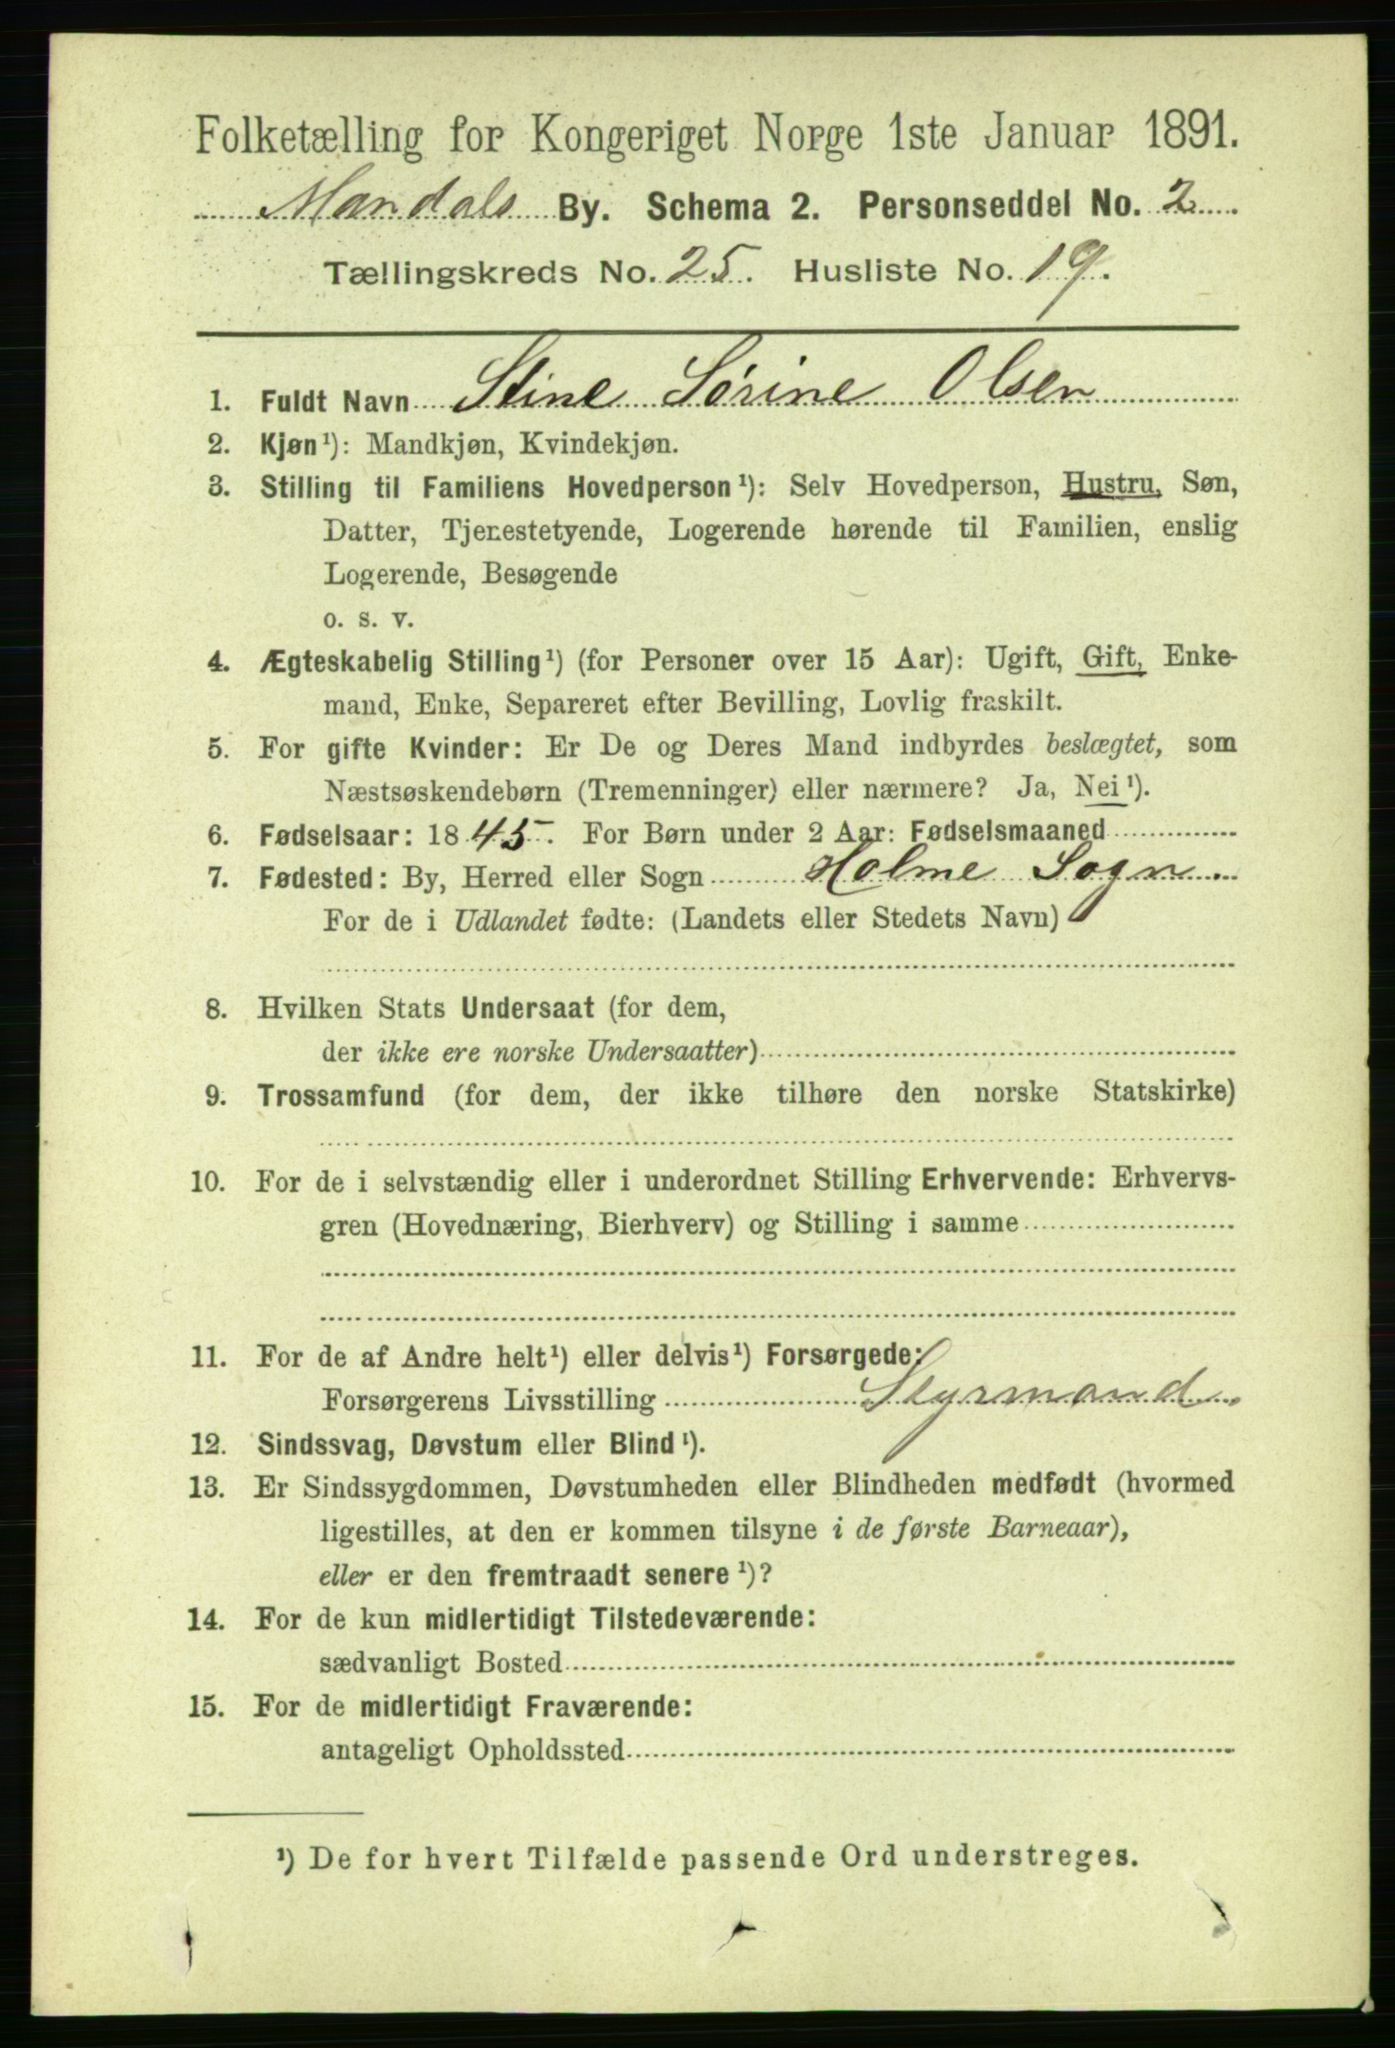 Folketælling for Kongeriget Norge 1ste Januar 1891.
Mandals By. Schema 2. Personseddel No. 2
Tællingskreds No. 25. Husliste No. 19.
1. Fuldt Navn Stine Sørine Olsen
2. Kjøn¹): Mandkjøn, Kvindekjøn.
3. Stilling til Familiens Hovedperson¹): Selv Hovedperson, Hustru, Søn,
Datter, Tjenestetyende, Logerende hørende til Familien, enslig
Logerende, Besøgende
o. s. v.
4. Ægteskabelig Stilling¹) (for Personer over 15 Aar): Ugift, Gift, Enke-
mand, Enke, Separeret efter Bevilling, Lovlig fraskilt.
5. For gifte Kvinder: Er De og Deres Mand indbyrdes beslægtet, som
Næstsøskendebørn (Tremenninger) eller nærmere? Ja, Nei¹).
6. Fødselsaar: 1845. For Børn under 2 Aar: Fødselsmaaned
7. Fødested: By, Herred eller Sogn Holme Sogn.
For de i Udlandet fødte: (Landets eller Stedets Navn)
8. Hvilken Stats Undersaat (for dem,
der ikke ere norske Undersaatter)
9. Trossamfund (for dem, der ikke tilhøre den norske Statskirke)
10. For de i selvstændig eller i underordnet Stilling Erhvervende: Erhvervs-
gren (Hovednæring, Bierhverv) og Stilling i samme
11. For de af Andre helt¹) eller delvis¹) Forsørgede:
Forsørgerens Livsstilling Styrmand.
12. Sindssvag, Døvstum eller Blind¹).
13. Er Sindssygdommen, Døvstumheden eller Blindheden medfødt (hvormed
ligestilles, at den er kommen tilsyne i de første Barneaar),
eller er den fremtraadt senere¹)?
14. For de kun midlertidigt Tilstedeværende:
sædvanligt Bosted
15. For de midlertidigt Fraværende:
antageligt Opholdssted
¹) De for hvert Tilfælde passende Ord understreges.